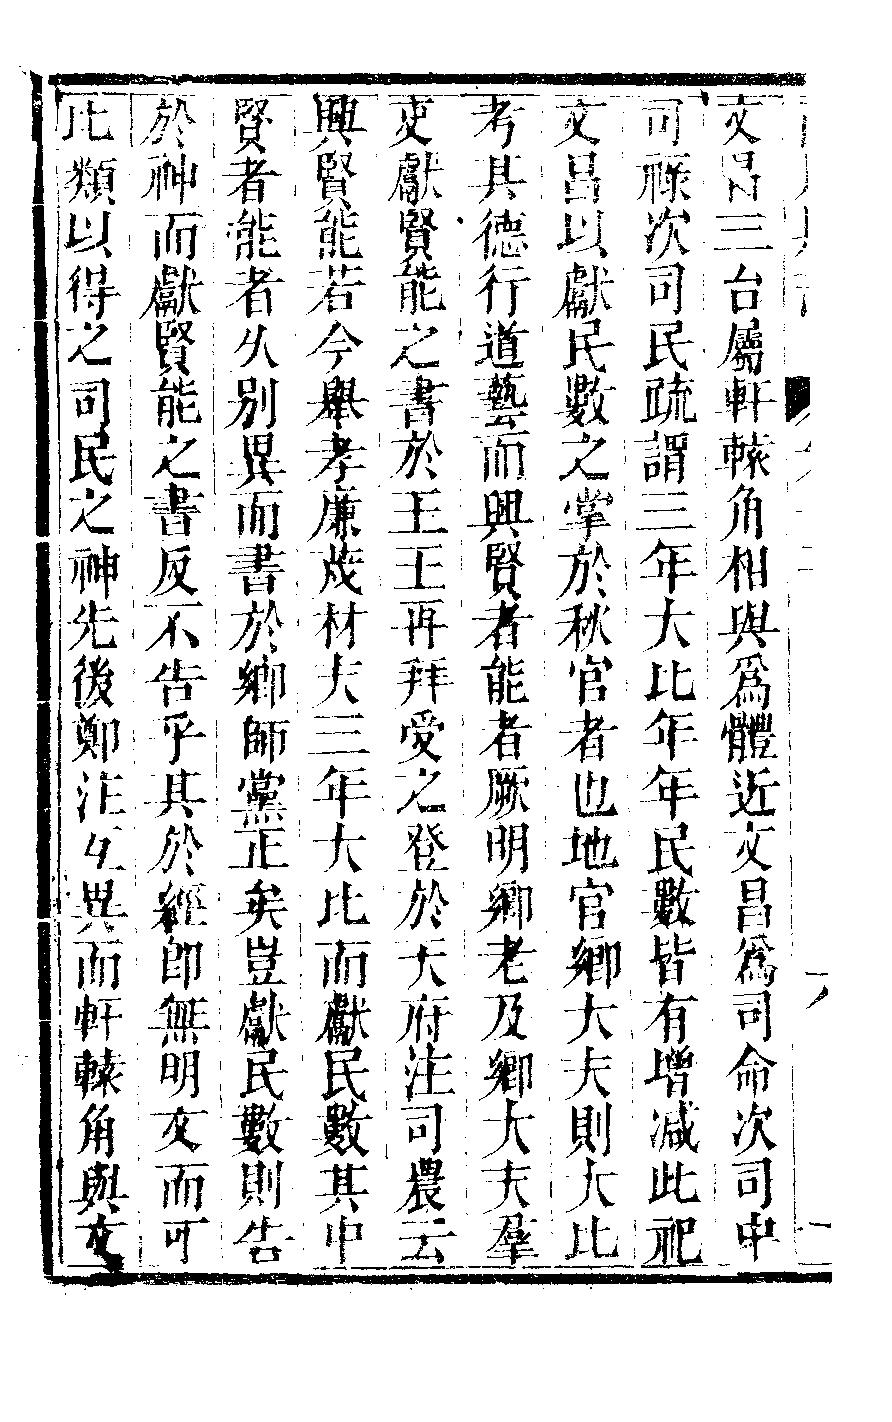 文昌三台屬軒轅角相與爲體近文昌爲司命次司中
司祿次司民疏謂三年大比年年民數皆有增減此祀
文昌以獻民數之掌於秋官者也地官鄉大夫則大比
考其德行道藝而興賢者能者厥明鄉老及鄉大夫羣
吏獻賢能之書於王王再拜受之登於天府注司農云
興賢能若今舉孝廉茂材夫三年大比而獻民數其中
賢者能者久別異而書於鄉師黨正矣豈獻民數則告
於神而獻賢能之書反不告乎其於經卽無明文而可
比類以得之司民之神先後鄭注互異而軒轅角與文